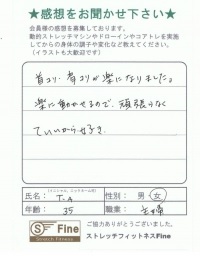 ★感想をお聞かせ下さい★
会員様の感想を募集しております。
動的ストレッチマシンやドローインやコアトレを実施
してからの身体の調子や変化など教えてください。
(イラストも大歓迎です)
首コリ・肩コリが楽になりました。
楽に動かせるので、頑張らなく
ていいから好き。
氏名: (イニシャル、ニックネーム可) T.A 性別: 男・女
年齢: 35 職業: 主婦
ご協力ありがとうございました。
S Fine
Stretch Fitness
ストレッチフィットネスFine